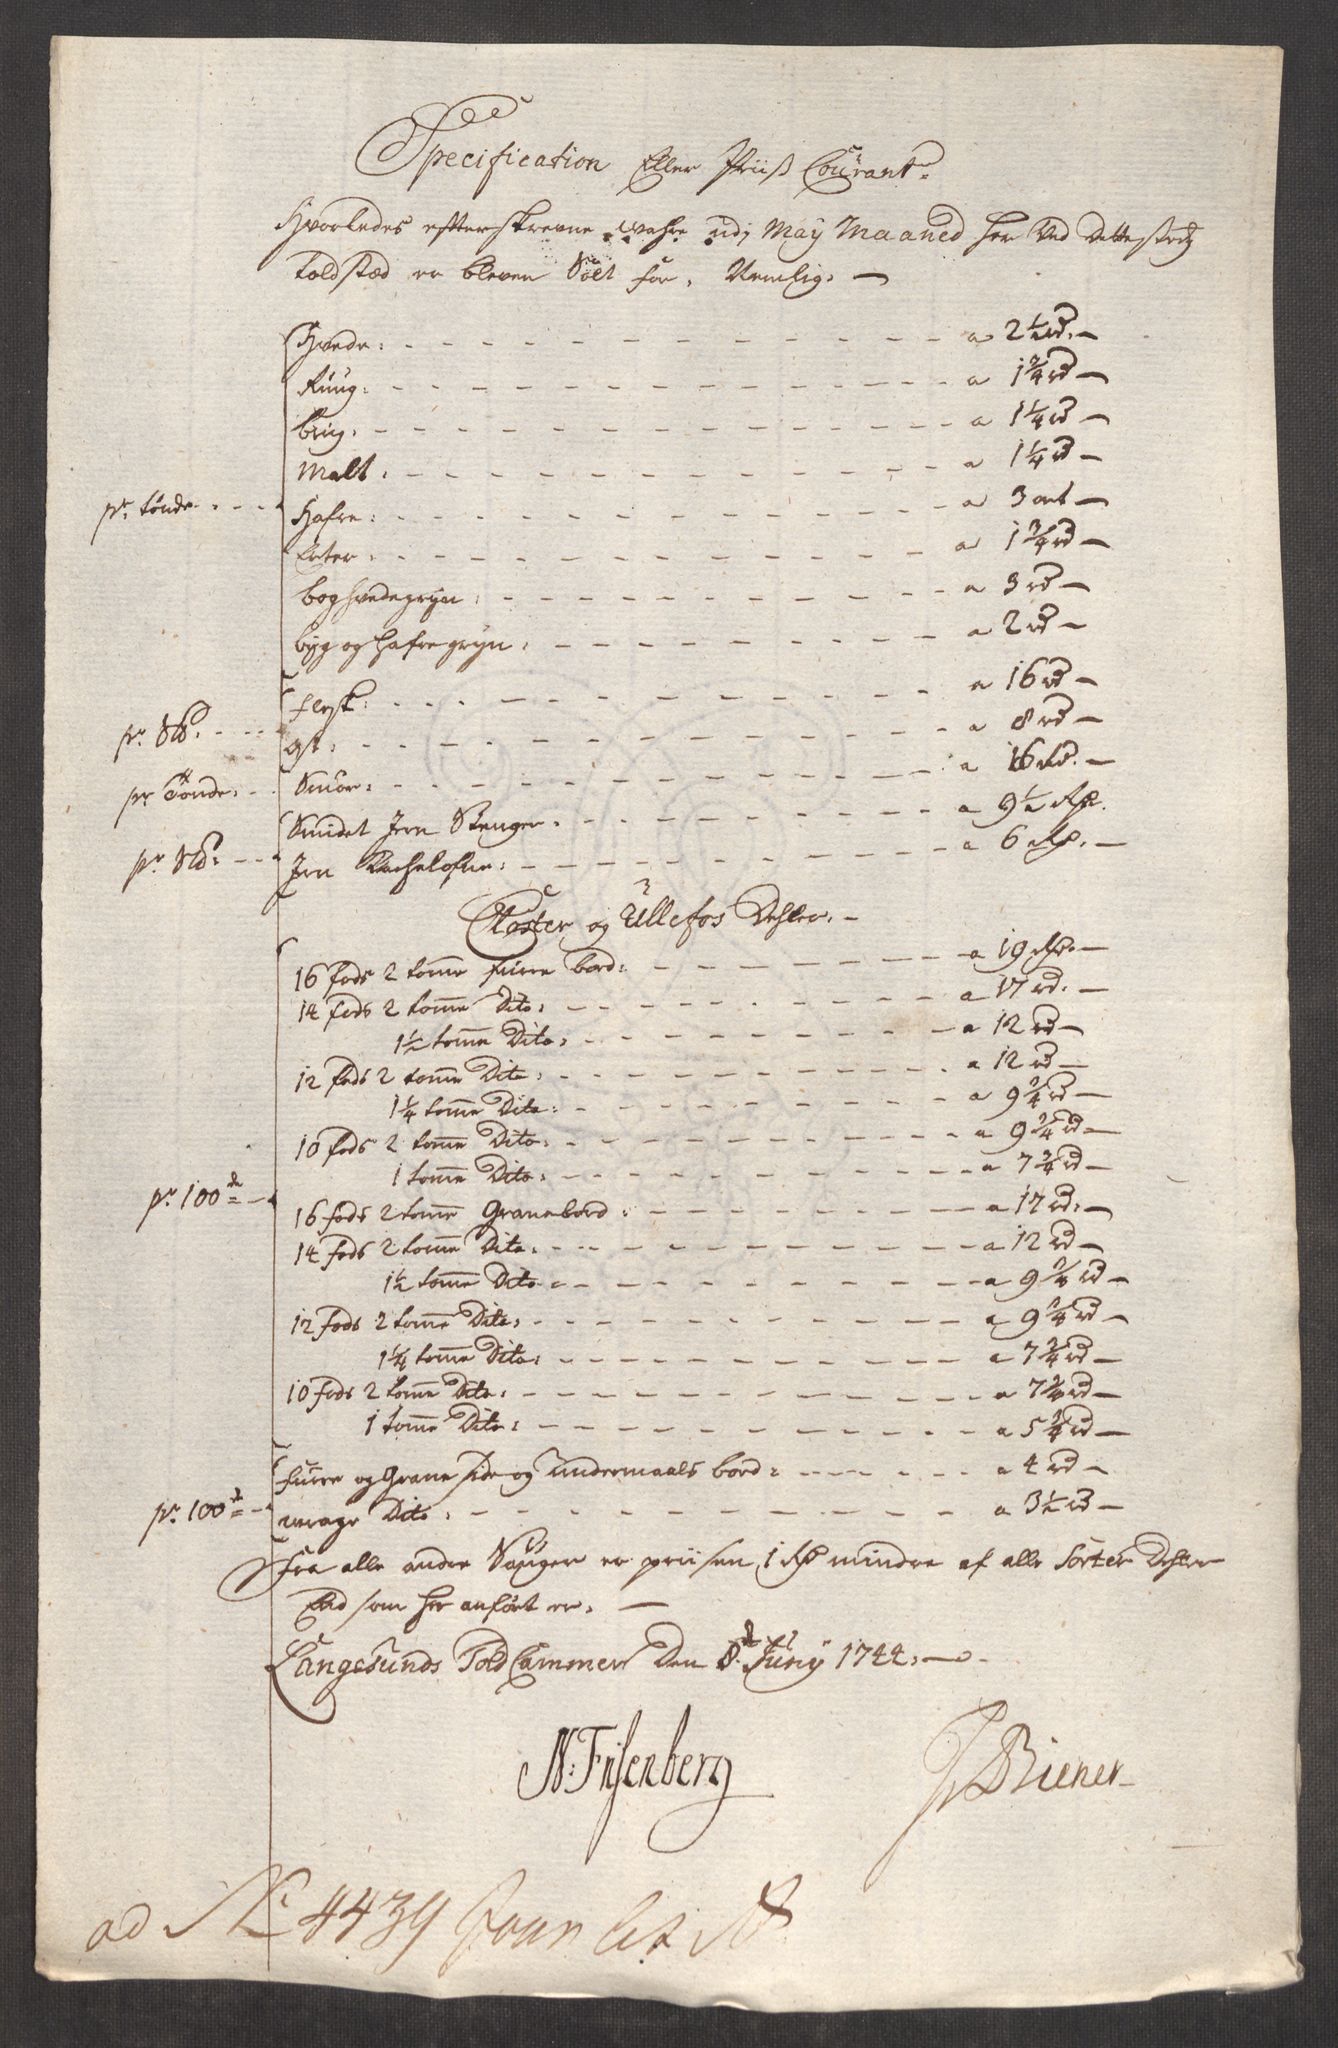 Specification Eller Priiß Courant
Hvorledes effterskrevne wahre udj Maij Maaned her Ved Dette
Toldstæd er bleven Solt for, Nemlig. —
Hvede: a 2½ rd. —
Rüug: a 1¾ rd —
bÿg. a 1¼ rd —
Malt: a 1¼ rd —
pr. tönde
Hafre: a 3 ort —
Erter: a 1¾ rd —
boghvedegryn: a 3 rd —
bÿg og hafregryn: a 2 rd —
flesk: a 16 rd —
pr. S℔:
Ost: a 8 rd —
pr Tönde:
Smör: a 16 Rd. —
Smidet Jern Stenger: a 9½ Rd.
pr. S℔:
Jern Kachelofne: a 6 Rd. —
Closter og Ullefos Dehler. —
16 fods 2 tomme furre bord: a 19 Rd. —
14 fods 2 tomme Dito: a 17 rd. —
1½ tomme Dito: a 12 rd —
12 fods 2 tomme Dito: a 12 rd —
1¼ tomme Dito: a 9¾ rd —
10 fods 2 tomme Dito: a 9¾ rd —
1 tomme Dito: a 7¾ rd —
pr. 100de
16 fods 2 tomme Granebord: a 17 rd: —
14 fods 2 tomme Dito: a 12 rd —
1½ tomme Dito a 9¾ rd —
12 fods 2 tomme Dito: a 9¾ rd —
1¼ tomme Dito: a 7¾ rd —
10 fods 2 tomme Dito: a 7¾ rd —
1 tomme Dito: a 5¾ rd —
furre og Grane side og Undermaals bord: a 4 rd —
pr. 100d
wrage Dito: a 3½ rd —
Fra alle andre Sauger er priisen 1 Rd mindre af alle Sorter Dehler
End som her anfört er. —
Langesunds Told Cammer Den 8d Junÿ 1744. —
N: Frisenberg
Biener
ad No 4439 Litr